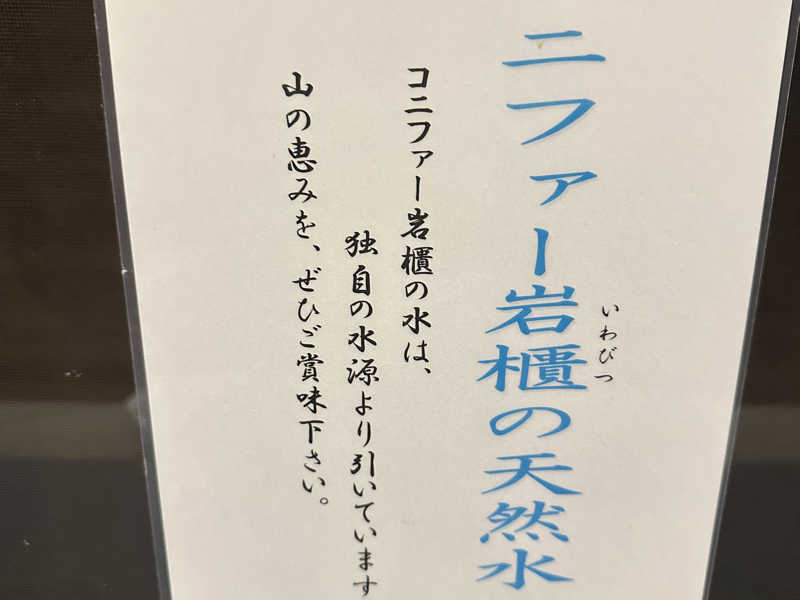 ニファー岩櫃の天然水
いわびつ
コニファー岩櫃の水は、
独自の水源より引いています
山の恵みを、ぜひご賞味下さい。